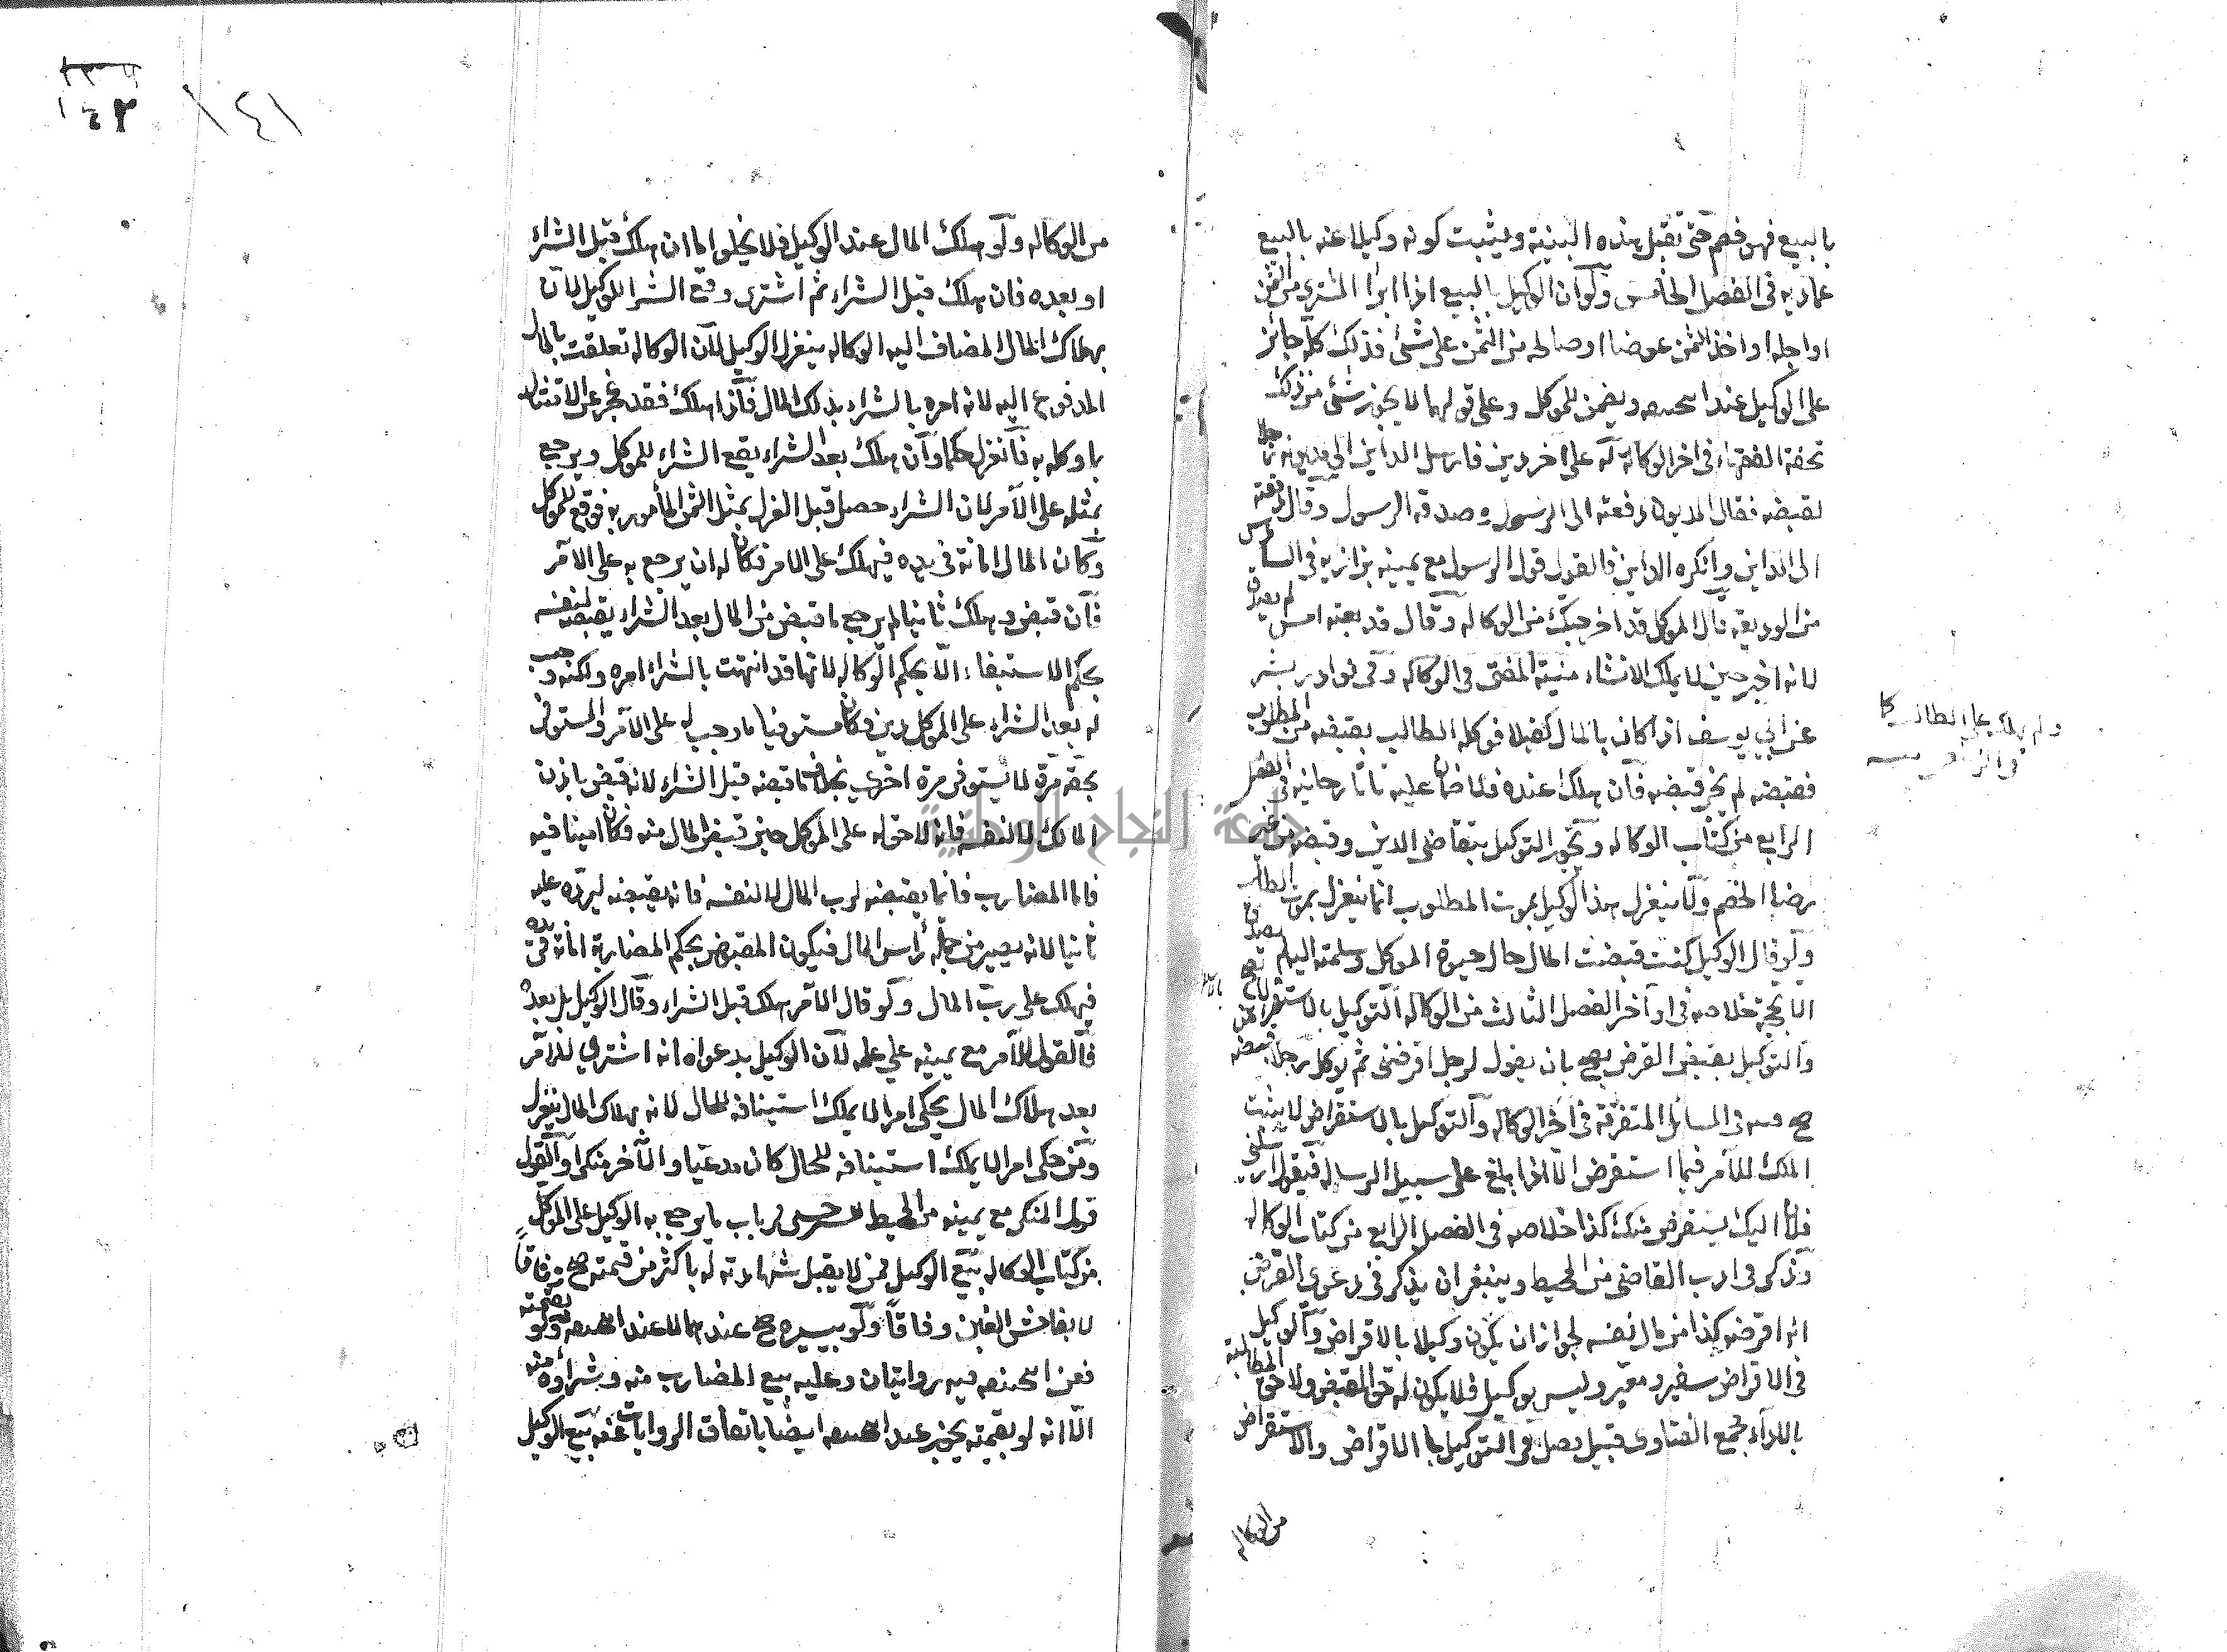 بالبيع فهو خصم حتى تقبل هذه البينة ويثبت كونه وكيلا عنه بالبيع
عماديه في الفصل الخامس ولو ان الوكيل بالبيع اذا ابرا المشتري من الثمن
او اجله او اخذ بالثمن عوضا او صالحه من الثمن على شئ فذلك كله جائز
على الوكيل عند ويضمن للموكل وعلى قولهما لا يجوز شئ من ذلك
تحفة الفقهاء في اخر الوكالة له على اخر دين فارسل الداين الى مديونه رجلا
لقبضه فقال المديون دفعته الى الرسول وصدقه الرسول وقال دفعته
الى الداين وانكره الداين فالقول قول الرسول مع يمينه بزازيه في السادس
من الوديعه قال الموكل قد اخرجتك من الوكاله وقال قد بعته امس لم يصدق
لانه اخبر حين لا يملك الانشاء منية المفتي في الوكاله وفي نوادر بشر
عن ابي يوسف اذا كان بالمال كفيلا فوكله الطالب بقبضه من المطلوب
فقبضه لم يجز قبضه فان هلك عنده فلا ضمان عليه تاتارخانيه في الفصل
الرابع من كتاب الوكاله ويجوز التوكيل بتقاضي الدين وقبضه من غير
رضا الخصم ولا ينعزل هذا الوكيل بموت المطلوب انما ينعزل بموت الطالب
ولو قال الوكيل كنت قبضت المال حال حيوة الموكل وسلمته اليه لم يصدق
الا بحجة خلاصه في اواخر الفصل الثالث من الوكاله التوكيل بالاستقراض
والتوكيل بقبض القرض يصح بان يقول لرجل اقرضني ثم يوكل رجلا بقبضه
صح في المسائل المتفرقة في اخر الوكاله والتوكيل بالاستقراض لا يثبت
الملك للآمر فيما استقرض الا اذا بلغ على سبيل الرساله فيقول ارسلني
فلان اليك يستقرض منك كذا خلاصه في الفصل الرابع من كتاب الوكاله
وذكر في ادب القاضي من المحيط وينبغي ان يذكر في دعوى القرض
انه اقرضه كذا من مال نفسه لجواز ان يكون وكيلا بالاقراض والوكيل
في الاقراض سفير ومعبر وليس بوكيل فلا يكون له حق القبض ولا حق المطالبة
بالاداء مجمع الفتاوى قبيل فصل في التوكيل بالاقراض والاستقراض
من الوكاله
ولم يهلك على الطالب كما
من الوكاله ولو هلك المال عند الوكيل فلا يخلو اما ان هلك قبل الشراء
او بعده فان هلك قبل الشراء ثم اشترى وقع الشرا للوكيل لان
بهلاك المال المضاف اليه الوكاله ينعزل الوكيل لان الوكاله تعلقت بالمال
المدفوع اليه لانه امره بالشراء بذلك المال فاذا هلك فقد عجز عن الامتثال
بما وكله به فانعزل حكما وان هلك بعد الشراء يقع الشراء للموكل ويرجع
بمثله على الآمر لان الشراء حصل قبل العزل بمثل الثمن المأمور به فوقع للموكل
وكان المال امانة في يده فيهلك على الامر فكان له ان يرجع به على الامر
فان قبض وهلك ثانيا لم يرجع ما قبض من المال بعد الشراء يقبضه لنفسه
بحكم الاستيفاء لا بحكم الوكاله لانها قد انتهت بالشراء امره ولكنه وجب
له بعد الشراء على الموكل دين فكان مستوفيا ما وجب له على الآمر والمستوفي
بحقه مرة لا يستوفي مرة اخرى بخلاف ما قبضه قبل الشراء لانه قبض باذن
المالك لا لنفسه فانه لا حق له على الموكل حين قبض المال منه فكان امينا فيه
فاما المضارب فانما يقبضه لرب المال لا لنفسه فانه يقبضه ليرده عليه
ثانيا لانه يصير من جملة رأس المال فيكون المقبوض بحكم المضاربة امانة في يده
فيهلك على رب المال ولو قال الآمر هلك قبل الشراء وقال الوكيل بل بعده
فالقول للآمر مع يمينه على علمه لان الوكيل بدعواه انه اشترى للآمر
بعد هلاك المال يحكي امرا لا يملك استينافه للحال لانه بهلاك المال ينعزل
ومن حكى امرا لا يملك استينافه للحال كان مدعيا والآخر منكرا والقول
قول المنكر مع يمينه من المحيط السرخسي في باب ما يرجع به الوكيل على الموكل
من كتاب الوكاله بيع الوكيل ممن لا يقبل شهادته له باكثر من قيمته صح وفاقا
لا بفاحش الغبن وفاقا ولو بيسيره صح عندهما لا عند ولو بقيمته
فعن فيه روايتان وعليه بيع المضارب منه وشراؤه منه
الا انه لو بقيمته يجوز عند ايضا باتفاق الروايات عنه بيع الوكيل
١٤١
جامعة النجاح الوطنية